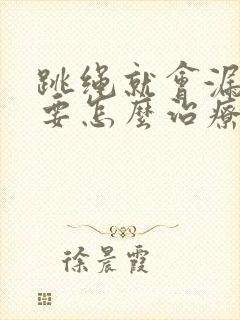 跳绳就會漏
要怎麼治療
徐晨霞